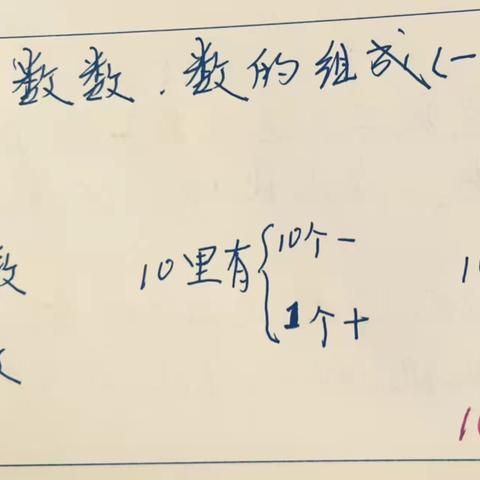 数数.数的组成(一
数 10里有{10个一 10
1个十
10